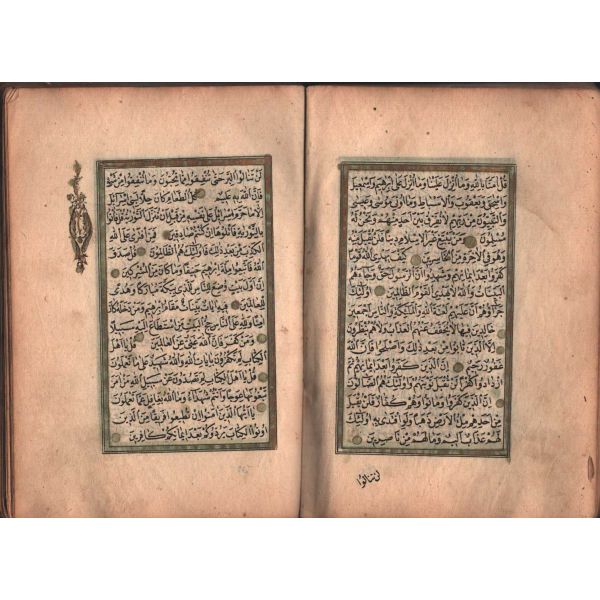 قُلْ اٰمَنَّا بِاللّٰهِ وَمَا اُنْزِلَ عَلَيْنَا وَمَا اُنْزِلَ عَلٰى اِبْرٰهِيمَ وَاِسْمٰعِيلَ
وَاِسْحٰقَ وَيَعْقُوبَ وَالْاَسْبَاطِ وَمَا اُوتِىَ مُوسٰى وَعِيسٰى
وَالنَّبِيُّونَ مِنْ رَبِّهِمْ لَا نُفَرِّقُ بَيْنَ اَحَدٍ مِنْهُمْ وَنَحْنُ لَهُ
مُسْلِمُونَ وَمَنْ يَبْتَغِ غَيْرَ الْاِسْلَامِ دِينًا فَلَنْ يُقْبَلَ مِنْهُ
وَهُوَ فِى الْاٰخِرَةِ مِنَ الْخَاسِرِينَ كَيْفَ يَهْدِى اللّٰهُ قَوْمًا
كَفَرُوا بَعْدَ اِيمَانِهِمْ وَشَهِدُوا اَنَّ الرَّسُولَ حَقٌّ وَجَاءَهُمُ
الْبَيِّنَاتُ وَاللّٰهُ لَا يَهْدِى الْقَوْمَ الظَّالِمِينَ اُولٰئِكَ
جَزَاؤُهُمْ اَنَّ عَلَيْهِمْ لَعْنَةَ اللّٰهِ وَالْمَلٰئِكَةِ وَالنَّاسِ اَجْمَعِينَ
خَالِدِينَ فِيهَا لَا يُخَفَّفُ عَنْهُمُ الْعَذَابُ وَلَا هُمْ يُنْظَرُونَ
اِلَّا الَّذِينَ تَابُوا مِنْ بَعْدِ ذٰلِكَ وَاَصْلَحُوا فَاِنَّ اللّٰهَ
غَفُورٌ رَحِيمٌ اِنَّ الَّذِينَ كَفَرُوا بَعْدَ اِيمَانِهِمْ ثُمَّ
ازْدَادُوا كُفْرًا لَنْ تُقْبَلَ تَوْبَتُهُمْ وَاُولٰئِكَ هُمُ الضَّالُّونَ
اِنَّ الَّذِينَ كَفَرُوا وَمَاتُوا وَهُمْ كُفَّارٌ فَلَنْ يُقْبَلَ
مِنْ اَحَدِهِمْ مِلْءُ الْاَرْضِ ذَهَبًا وَلَوِ افْتَدٰى بِهِ اُولٰئِكَ
لَهُمْ عَذَابٌ اَلِيمٌ وَمَا لَهُمْ مِنْ نَاصِرِينَ
لن تنالوا
لَنْ تَنَالُوا الْبِرَّ حَتّٰى تُنْفِقُوا مِمَّا تُحِبُّونَ وَمَا تُنْفِقُوا مِنْ شَىْءٍ
فَاِنَّ اللّٰهَ بِهِ عَلِيمٌ كُلُّ الطَّعَامِ كَانَ حِلًّا لِبَنِى اِسْرَائِلَ
اِلَّا مَا حَرَّمَ اِسْرَائِلُ عَلٰى نَفْسِهِ مِنْ قَبْلِ اَنْ تُنَزَّلَ التَّوْرٰيةُ قُلْ فَأْتُوا
بِالتَّوْرٰيةِ فَاتْلُوهَا اِنْ كُنْتُمْ صَادِقِينَ فَمَنِ افْتَرٰى عَلَى اللّٰهِ
الْكَذِبَ مِنْ بَعْدِ ذٰلِكَ فَاُولٰئِكَ هُمُ الظَّالِمُونَ قُلْ صَدَقَ
اللّٰهُ فَاتَّبِعُوا مِلَّةَ اِبْرٰهِيمَ حَنِيفًا وَمَا كَانَ مِنَ الْمُشْرِكِينَ
اِنَّ اَوَّلَ بَيْتٍ وُضِعَ لِلنَّاسِ لَلَّذِى بِبَكَّةَ مُبَارَكًا وَهُدًى
لِلْعَالَمِينَ فِيهِ اٰيَاتٌ بَيِّنَاتٌ مَقَامُ اِبْرٰهِيمَ وَمَنْ دَخَلَهُ كَانَ
اٰمِنًا وَلِلّٰهِ عَلَى النَّاسِ حِجُّ الْبَيْتِ مَنِ اسْتَطَاعَ اِلَيْهِ سَبِيلًا
وَمَنْ كَفَرَ فَاِنَّ اللّٰهَ غَنِىٌّ عَنِ الْعَالَمِينَ قُلْ يَا اَهْلَ
الْكِتَابِ لِمَ تَكْفُرُونَ بِاٰيَاتِ اللّٰهِ وَاللّٰهُ شَهِيدٌ عَلٰى مَا تَعْمَلُونَ
قُلْ يَا اَهْلَ الْكِتَابِ لِمَ تَصُدُّونَ عَنْ سَبِيلِ اللّٰهِ مَنْ اٰمَنَ
تَبْغُونَهَا عِوَجًا وَاَنْتُمْ شُهَدَاءُ وَمَا اللّٰهُ بِغَافِلٍ عَمَّا تَعْمَلُونَ
يَا اَيُّهَا الَّذِينَ اٰمَنُوا اِنْ تُطِيعُوا فَرِيقًا مِنَ الَّذِينَ
اُوتُوا الْكِتَابَ يَرُدُّوكُمْ بَعْدَ اِيمَانِكُمْ كَافِرِينَ